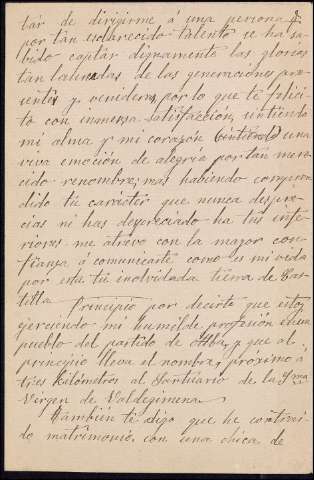 tár de dirigirme á una persona q.
por tan esclarecido talento se ha sa-
bido captár dignamente las glorias
tan laureadas de las generaciónes pre-
sentes y venideras, por lo que te felici-
to con inmensa satisfacción, sintiendo
mi alma y mi corazón una
viva emoción de alegria por tán mere-
cido renombre; mas habiendo compren-
dido tu carácter que nunca despre-
cias ni has despreciado ha tus infe-
riores me atrevo con la mayor con-
fianza á comunicarte como es mi vida
por esta tú inolvidada tierra de Cas-
tilla.
Principio por decirte que estoy
ejerciendo mi humilde profesión en un
pueblo del partido de Alba, y que al
principio lleva el nombre, próximo á
tres Kilómtros al Santuario de la Sma
Vírgen de Valdegimena.
También te digo que he contrai-
do matrimonio con una chica de